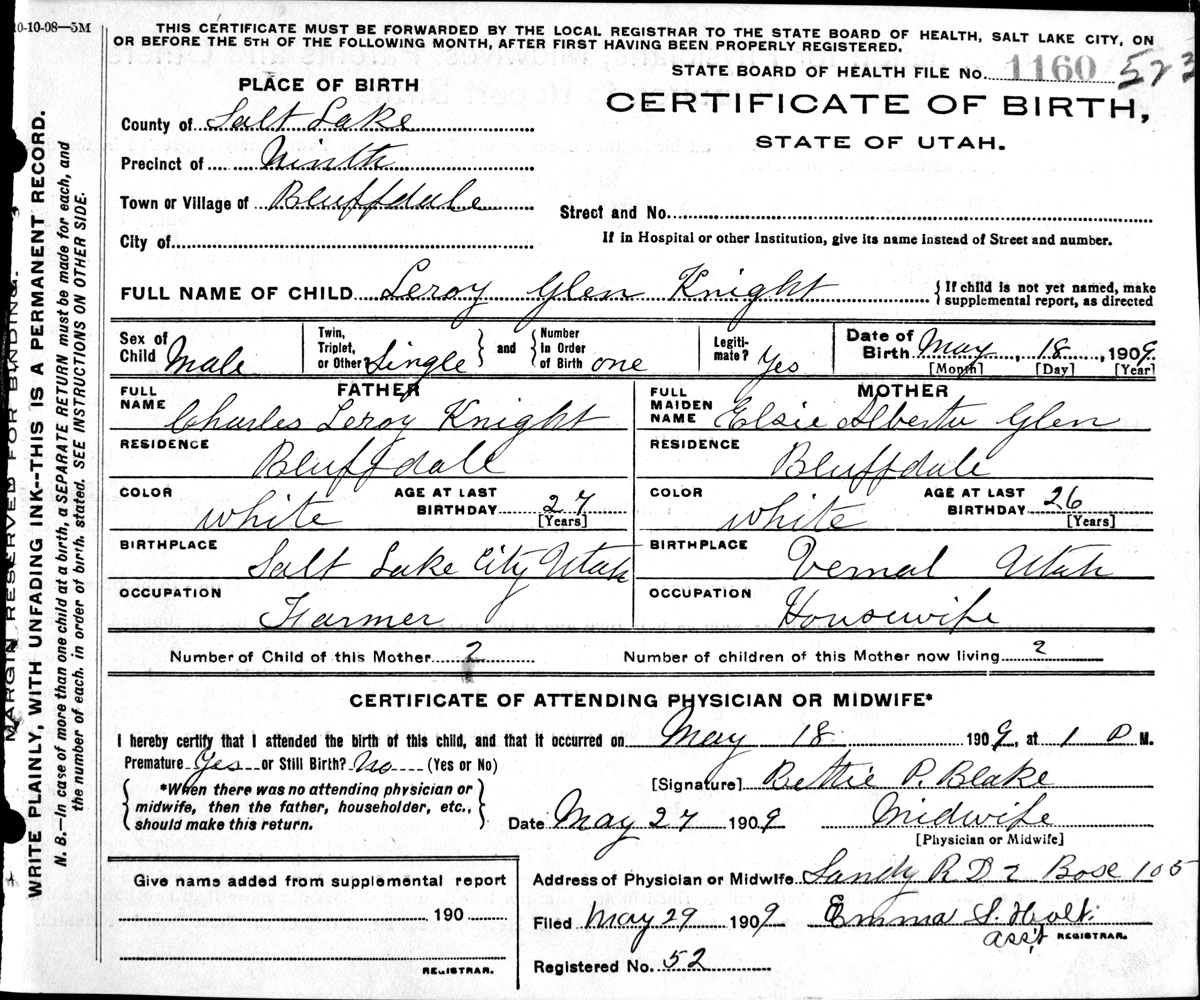 10-10-08—5M
THIS CERTIFICATE MUST BE FORWARDED BY THE LOCAL REGISTRAR TO THE STATE BOARD OF HEALTH, SALT LAKE CITY, ON
OR BEFORE THE 5TH OF THE FOLLOWING MONTH, AFTER FIRST HAVING BEEN PROPERLY REGISTERED.
STATE BOARD OF HEALTH FILE No. 1160 523
PLACE OF BIRTH
CERTIFICATE OF BIRTH,
STATE OF UTAH.
County of Salt Lake
Precinct of Ninth
Town or Village of Bluffdale
Street and No.
City of
If in Hospital or other Institution, give its name instead of Street and number.
FULL NAME OF CHILD Leroy Glen Knight { If child is not yet named, make supplemental report, as directed
Sex of Child Male Twin, Triplet, or Other Single } and { Number In Order of Birth one Legitimate? Yes Date of Birth May, 18, 1909.
[Month] [Day] [Year]
FATHER MOTHER
FULL NAME Charles Leroy Knight FULL MAIDEN NAME Elsie Alberta Glen
RESIDENCE Bluffdale RESIDENCE Bluffdale
COLOR White AGE AT LAST BIRTHDAY 27 [Years] COLOR White AGE AT LAST BIRTHDAY 26 [Years]
BIRTHPLACE Salt Lake City Utah BIRTHPLACE Vernal Utah
OCCUPATION Farmer OCCUPATION Housewife
Number of Child of this Mother 2 Number of children of this Mother now living 2
CERTIFICATE OF ATTENDING PHYSICIAN OR MIDWIFE*
I hereby certify that I attended the birth of this child, and that it occurred on May 18 1909, at 1 P M.
Premature Yes or Still Birth? No (Yes or No)
[Signature] Bettie P. Blake
{ *When there was no attending physician or midwife, then the father, householder, etc., should make this return. }
Date May 27 1909 Midwife
[Physician or Midwife]
Give name added from supplemental report
190
REGISTRAR.
Address of Physician or Midwife Sandy R D 2 Boxe 105
Filed May 29 1909 Emma S. Holt.
ass't REGISTRAR.
Registered No. 52
MARGIN RESERVED FOR BINDING.
WRITE PLAINLY, WITH UNFADING INK--THIS IS A PERMANENT RECORD.
N. B.—In case of more than one child at a birth, a SEPARATE RETURN must be made for each, and
the number of each, in order of birth, stated. SEE INSTRUCTIONS ON OTHER SIDE.